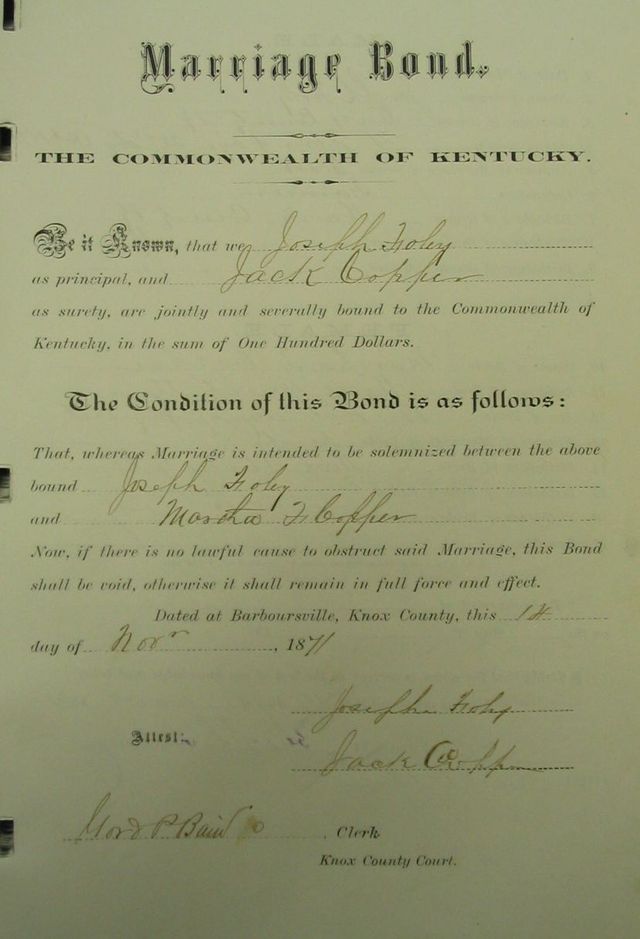 Marriage Bond.
THE COMMONWEALTH OF KENTUCKY.
Be it Known, that we, Joseph Foley
as principal, and Jack Copper
as surety, are jointly and severally bound to the Commonwealth of
Kentucky, in the sum of One Hundred Dollars.
The Condition of this Bond is as follows:
That, whereas Marriage is intended to be solemnized between the above
bound Joseph Foley
and Martha F Copper
Now, if there is no lawful cause to obstruct said Marriage, this Bond
shall be void, otherwise it shall remain in full force and effect.
Dated at Barboursville, Knox County, this 14
day of Novr, 1871
Joseph Foley
Attest:
Jack Copper
P Baird, Clerk
Knox County Court.